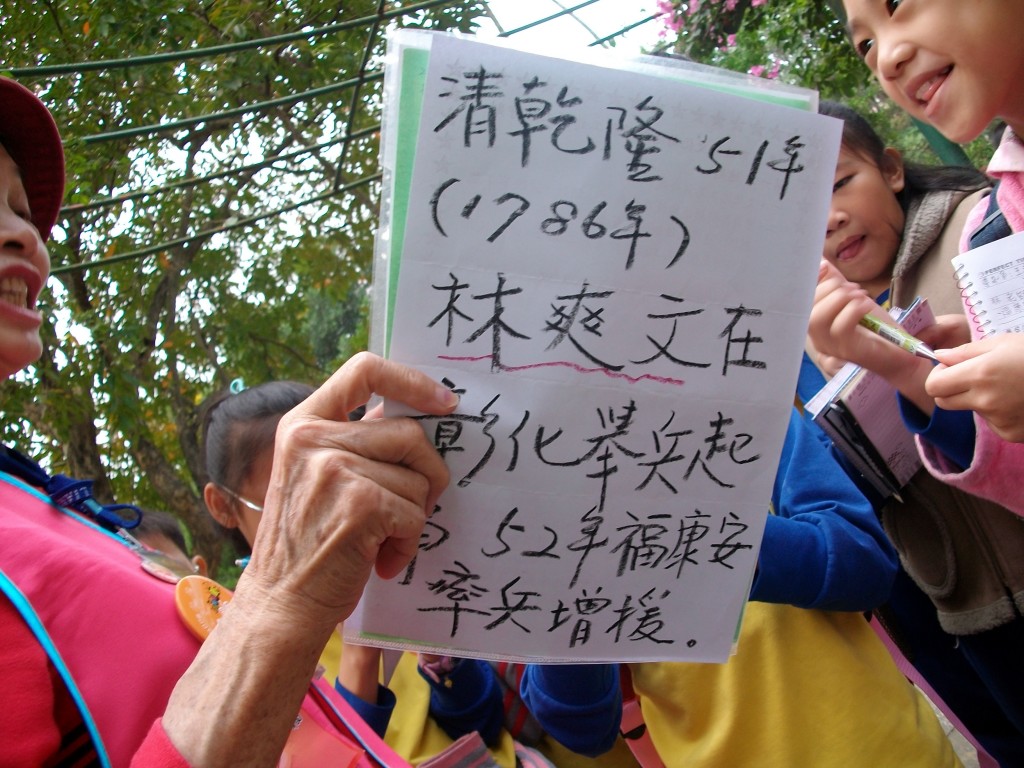 清乾隆51年
(1786年)
林爽文在
彰化舉兵起
52年福康安
率兵增援。